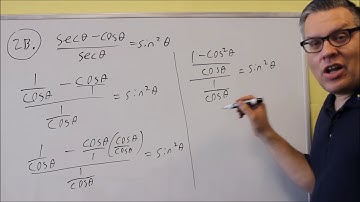 2B. secθ - cosθ / secθ = sin²θ
1/cosθ - cosθ/1 / 1/cosθ = sin²θ
1/cosθ - cosθ/1 (cosθ/cosθ) / 1/cosθ = sin²θ
1-cos²θ / cosθ / 1/cosθ = sin²θ